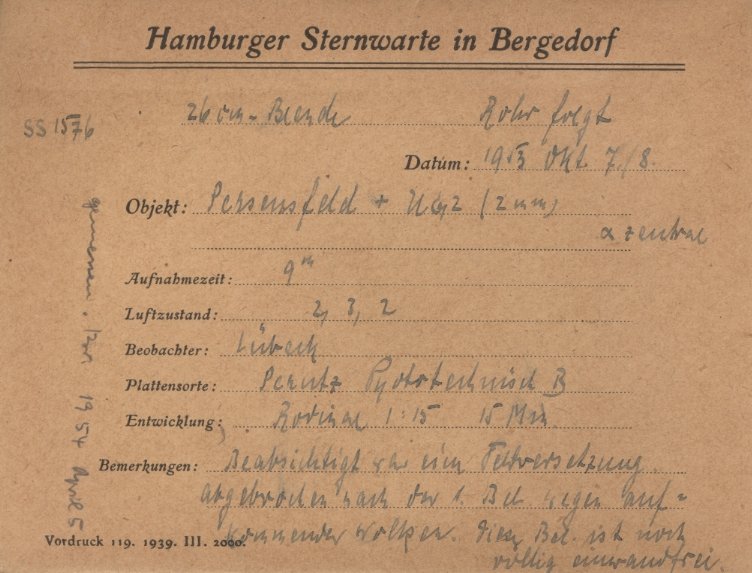 Hamburger Sternwarte in Bergedorf
SS 1576
26 cm - Blende Rohr folgt
Datum: 1953 Okt 7./8.
Objekt: Perseusfeld + UG2 (2mm)
α zentral
Aufnahmezeit: 9ᵐ
Luftzustand: 2, 3, 2
Beobachter: Lübeck
Plattensorte: Perutz Phototechnisch B
Entwicklung: Rodinal 1:15 15 Min
Bemerkungen: Beabsichtigt war eine
abgebrochen nach der 1. Bel. wegen auf-
kommender Wolken. Diese Bel. ist noch
völlig einwandfrei.
Vordruck 119. 1939. III. 2000.
gemessen. 1954 April 5